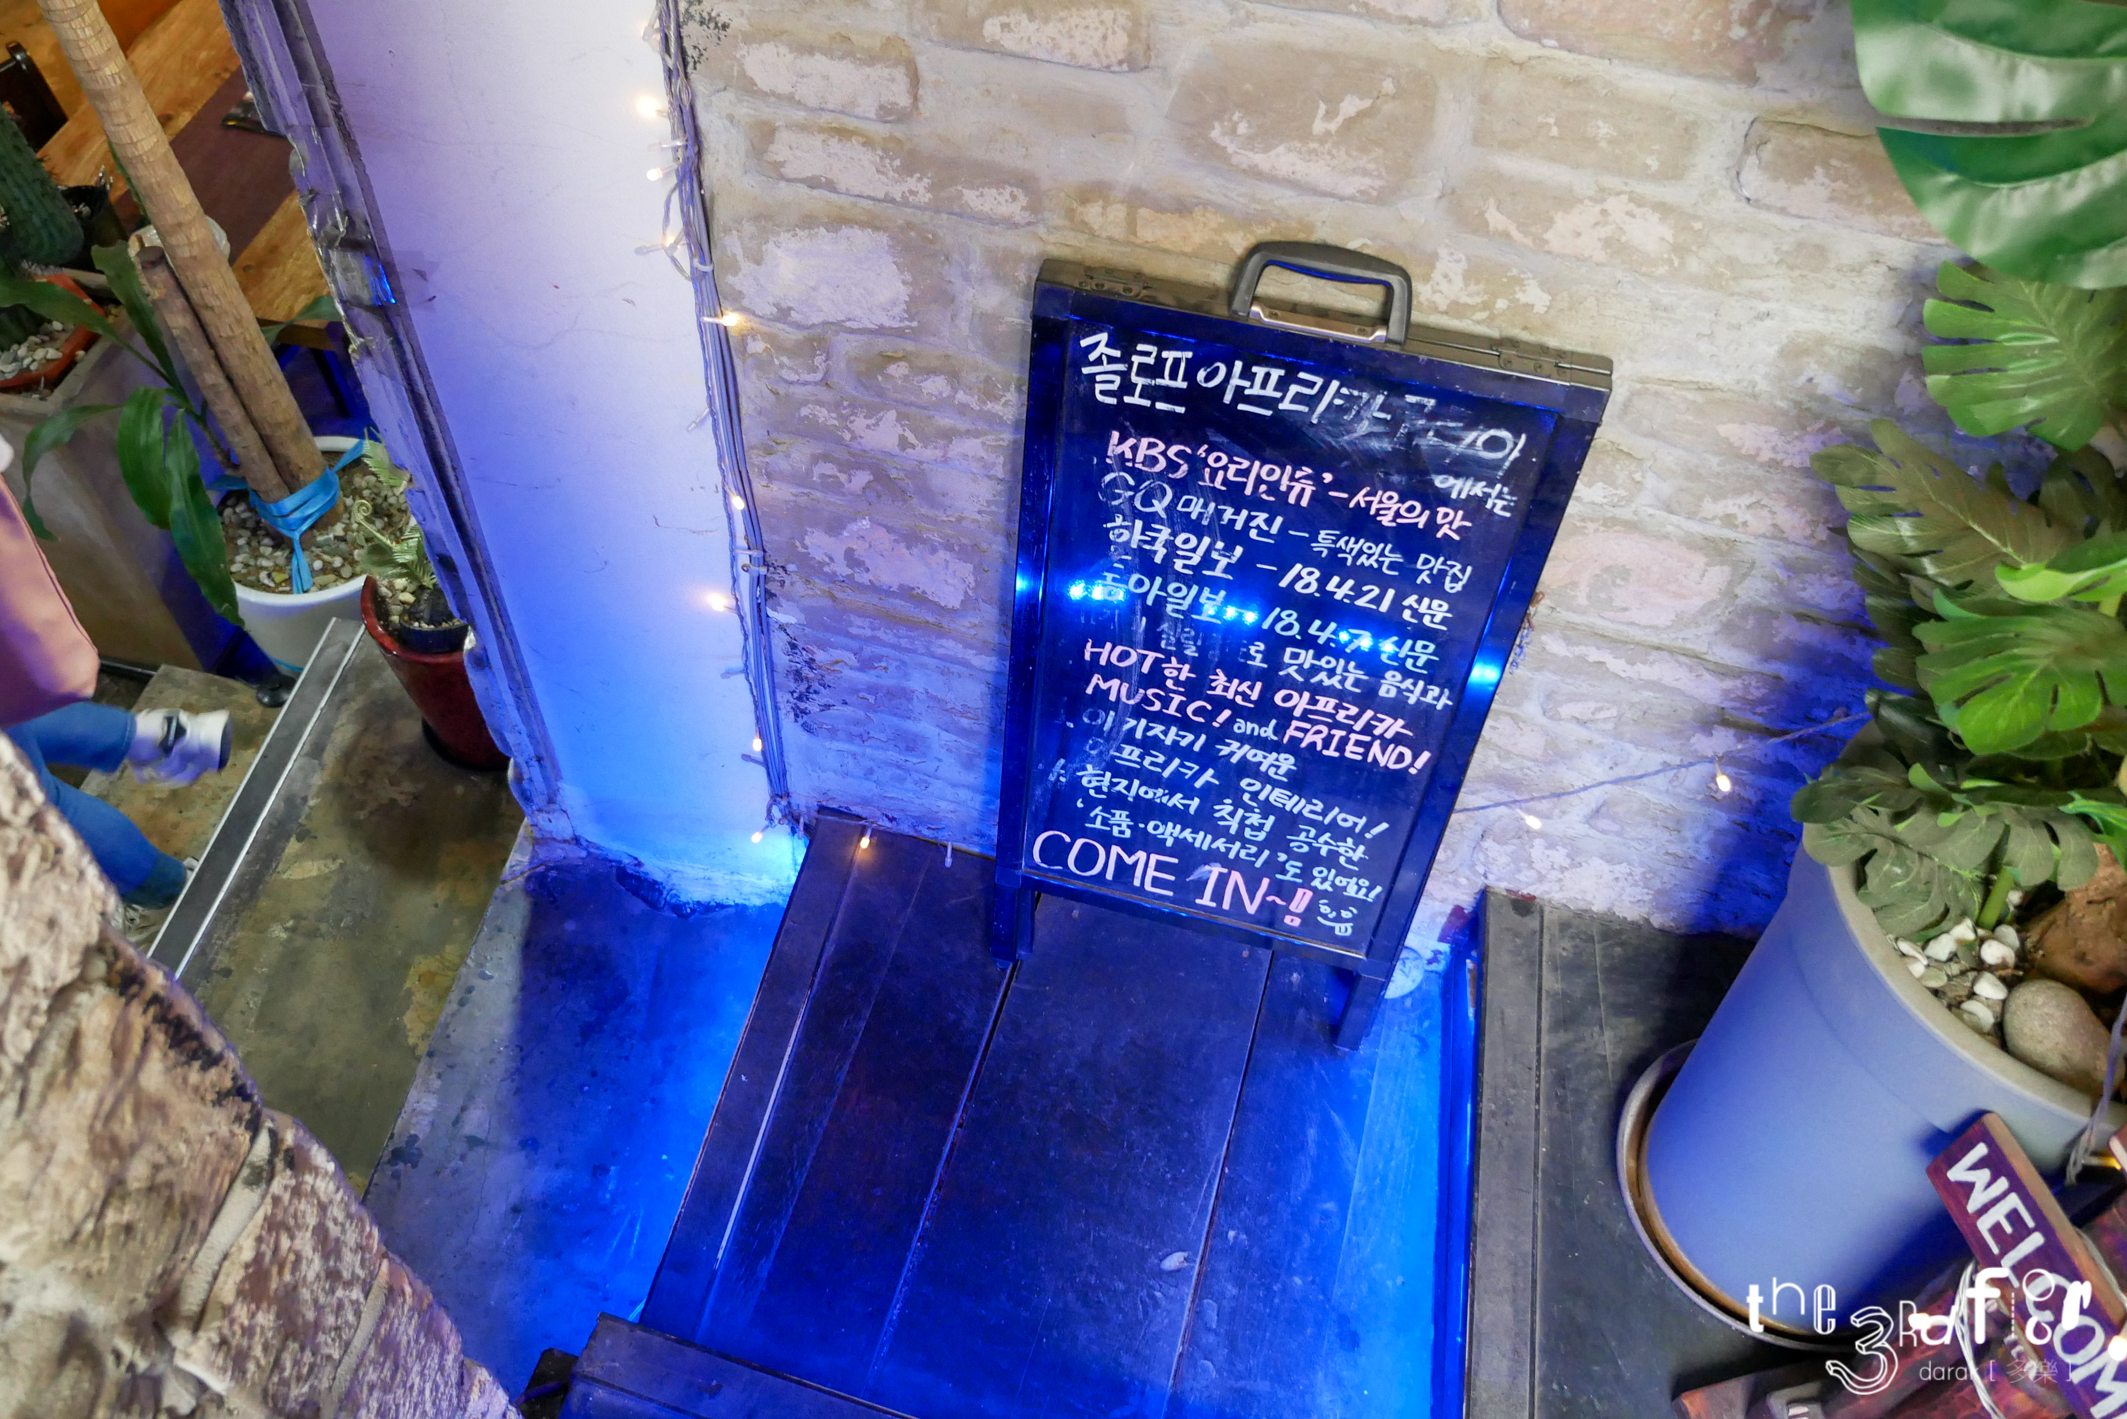 졸로프 아프리카
에서는
KBS '요리인류' - 서울의 맛
GQ 매거진 - 특색있는 맛집
한국일보 - 18.4.21 신문
동아일보 - 18.4.7 신문
로 맛있는 음식과
HOT한 최신 아프리카
MUSIC! and FRIEND!
아기자기 귀여운
아프리카 인테리어!
현지에서 직접 공수한
'소품·액세서리'도 있어요!
COME IN~!!
WELCOME
the 3Rd floor
darak [ 多樂 ]